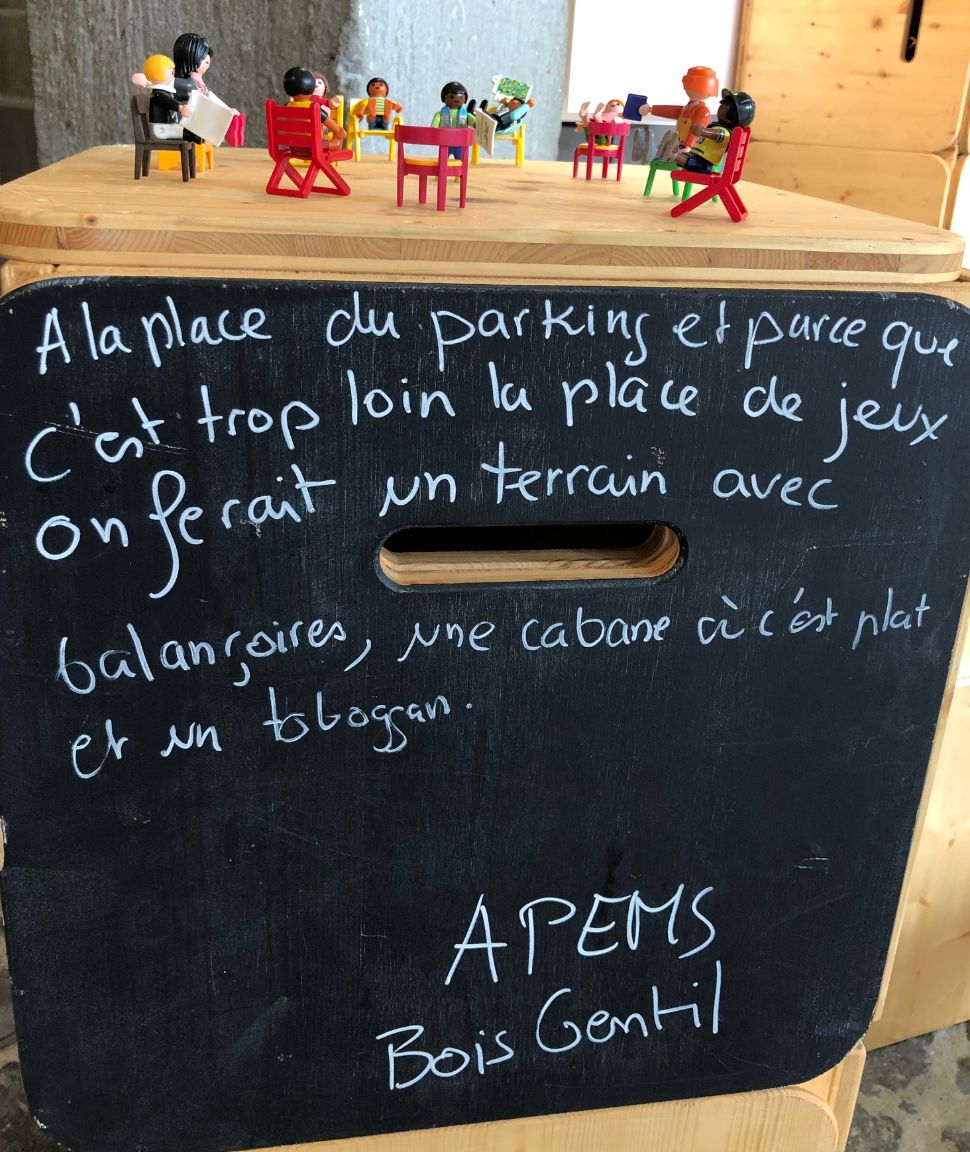 A la place du parking et parce que
c'est trop loin la place de jeux
on ferait un terrain avec
balançoires, une cabane où c'est plat
et un toboggan.
APEMS
Bois Gentil